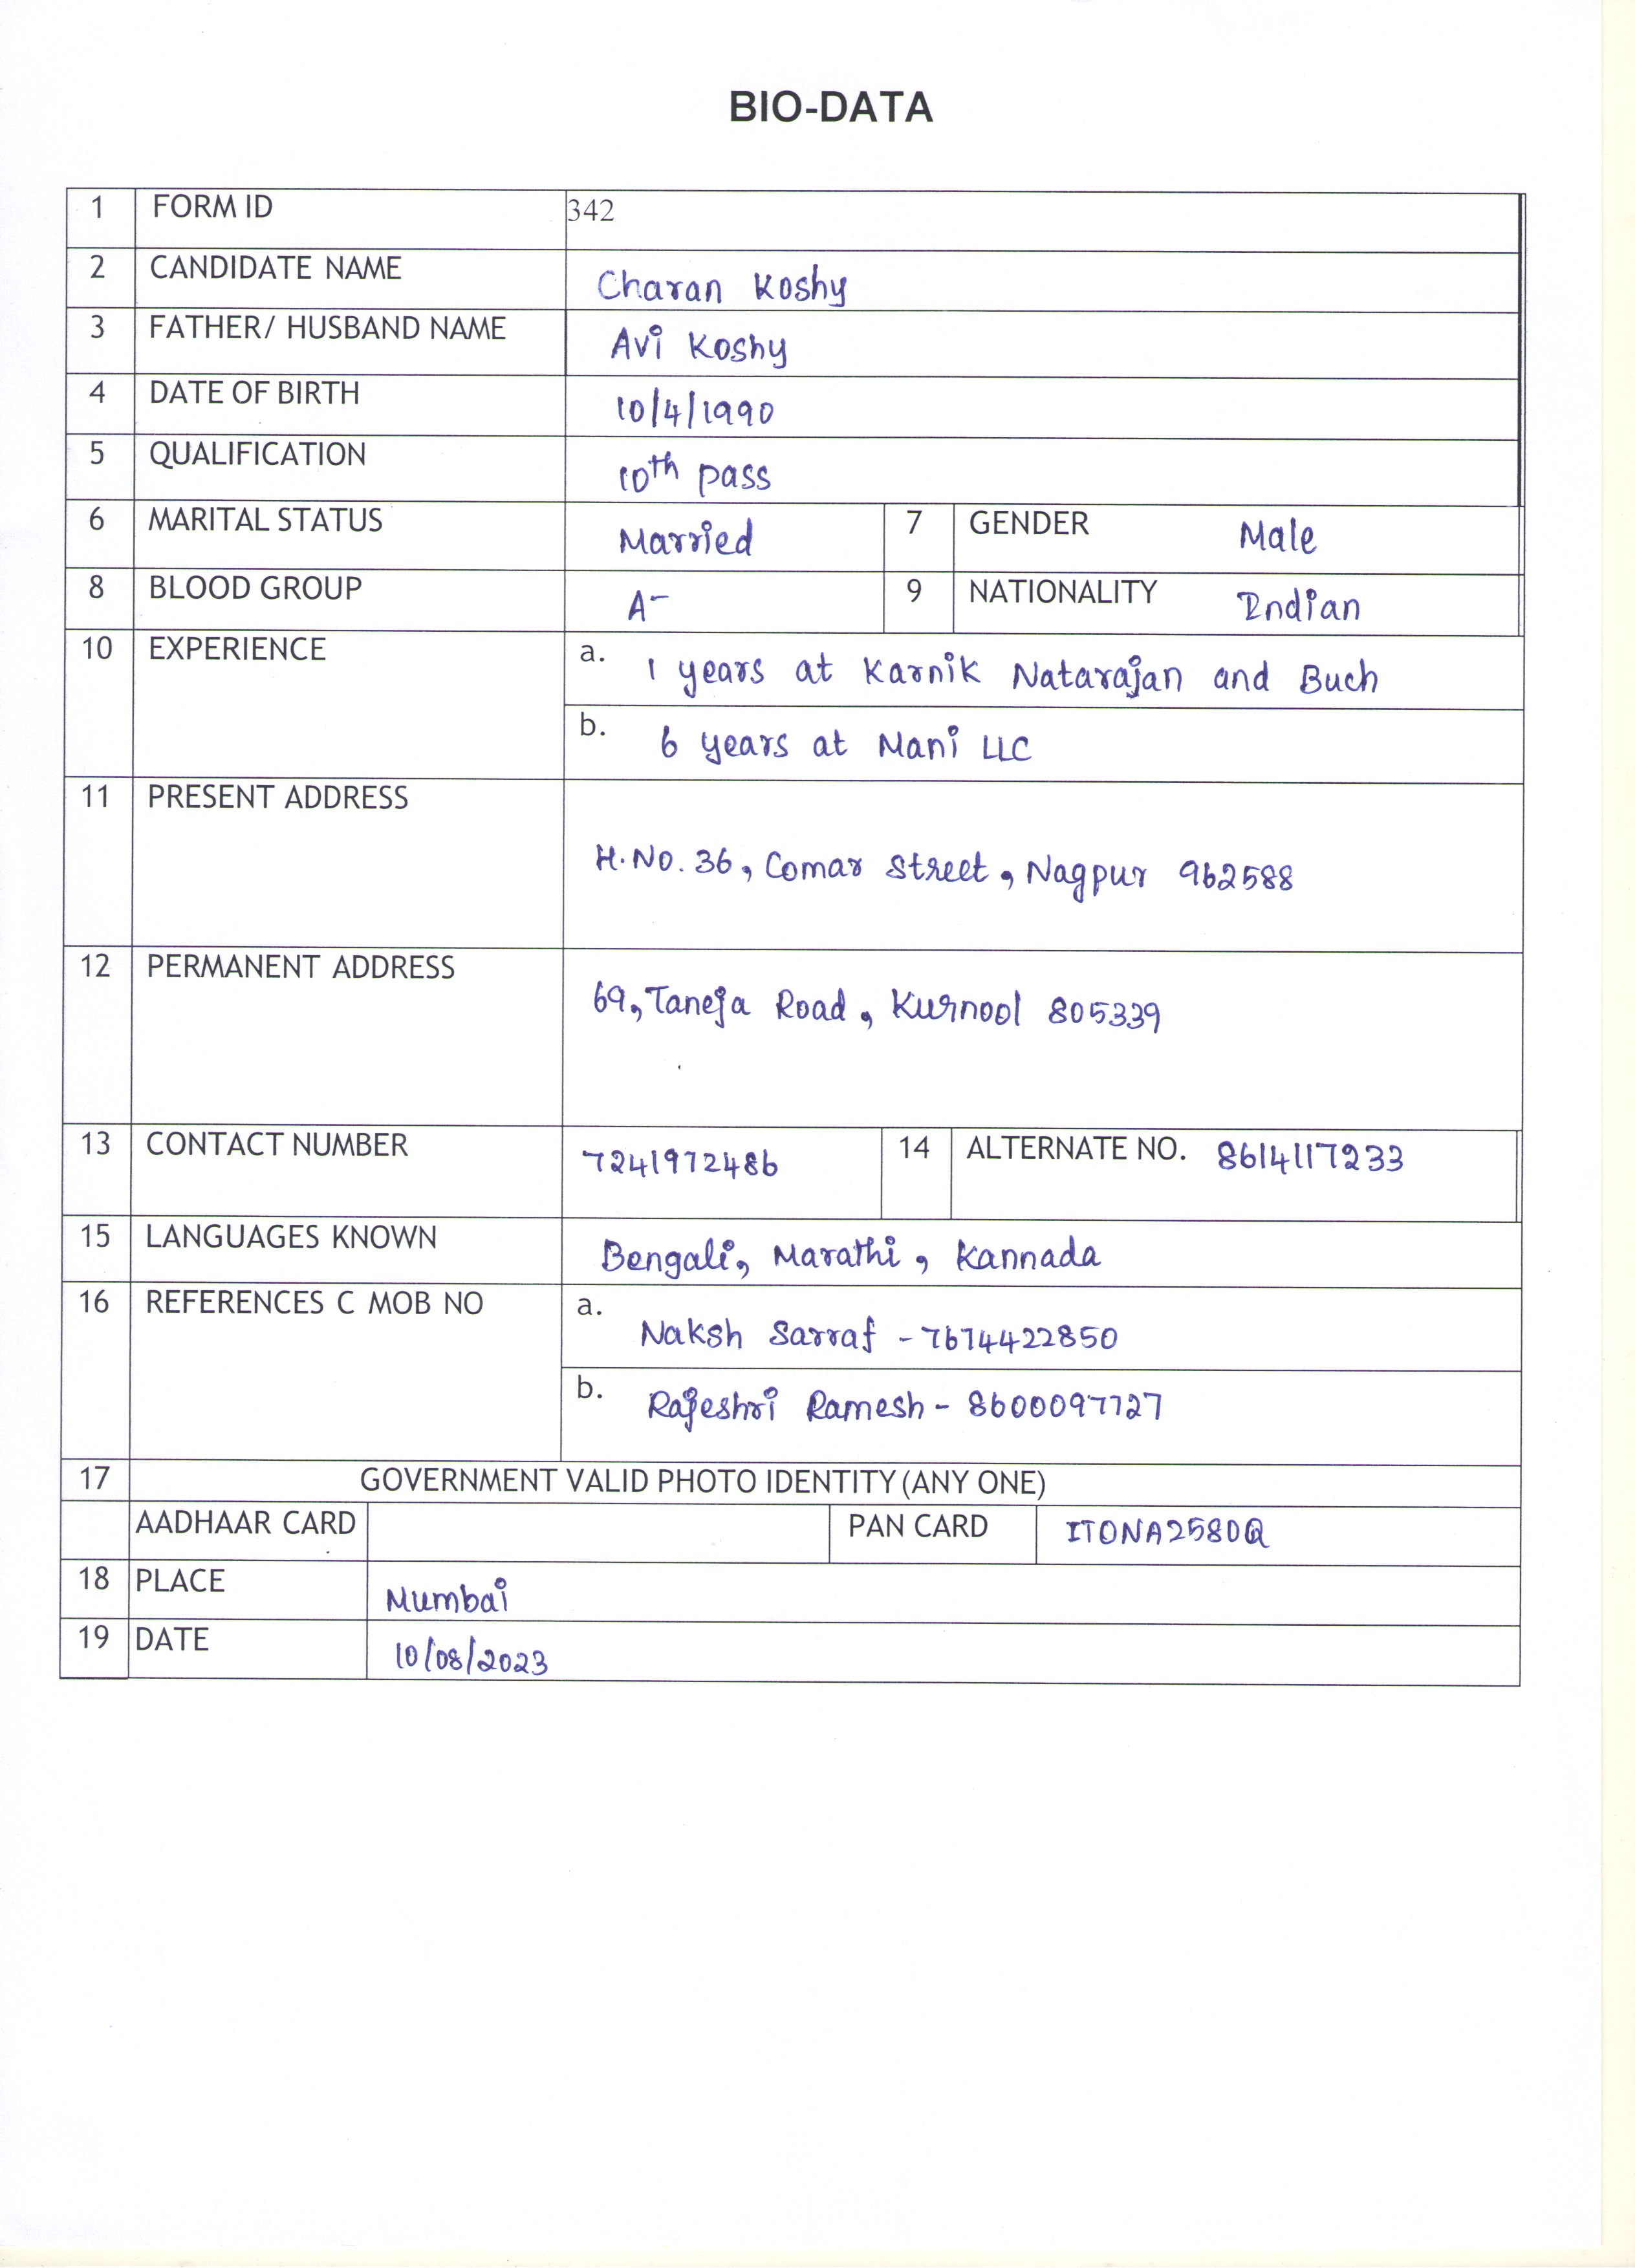 BIO-DATA
1 FORM ID 342
2 CANDIDATE NAME Charan Koshy
3 FATHER/ HUSBAND NAME Avi Koshy
4 DATE OF BIRTH 10/4/1990
5 QUALIFICATION 10th pass
6 MARITAL STATUS Married 7 GENDER Male
8 BLOOD GROUP A- 9 NATIONALITY Indian
10 EXPERIENCE a. 1 years at Karnik Natarajan and Buch
b. 6 years at Mani LLC
11 PRESENT ADDRESS
H.No. 36, Comar Street, Nagpur 962588
12 PERMANENT ADDRESS
69, Taneja Road, Kurnool 805339
13 CONTACT NUMBER 7241972486 14 ALTERNATE NO. 8614117233
15 LANGUAGES KNOWN Bengali, Marathi, Kannada
16 REFERENCES C MOB NO a. Naksh Sarraf - 7674422850
b. Rajeshri Ramesh - 8600097727
17 GOVERNMENT VALID PHOTO IDENTITY (ANY ONE)
AADHAAR CARD PAN CARD ITONA2580Q
18 PLACE Mumbai
19 DATE 10/08/2023